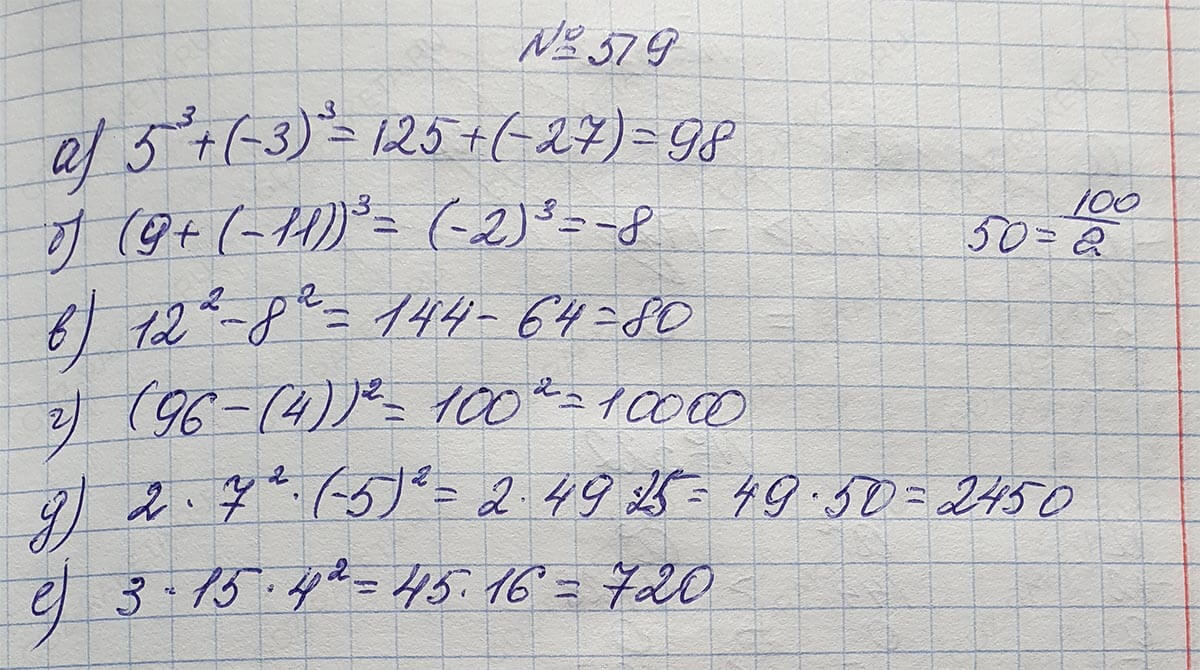 № 519
а) 5³ + (-3)³ = 125 + (-27) = 98
б) (9 + (-11))³ = (-2)³ = -8
50 = 100/2
в) 12² - 8² = 144 - 64 = 80
г) (96 - (4))² = 100² = 10000
д) 2 · 7² · (-5)² = 2 · 49 · 25 = 49 · 50 = 2450
е) 3 · 15 · 4² = 45 · 16 = 720